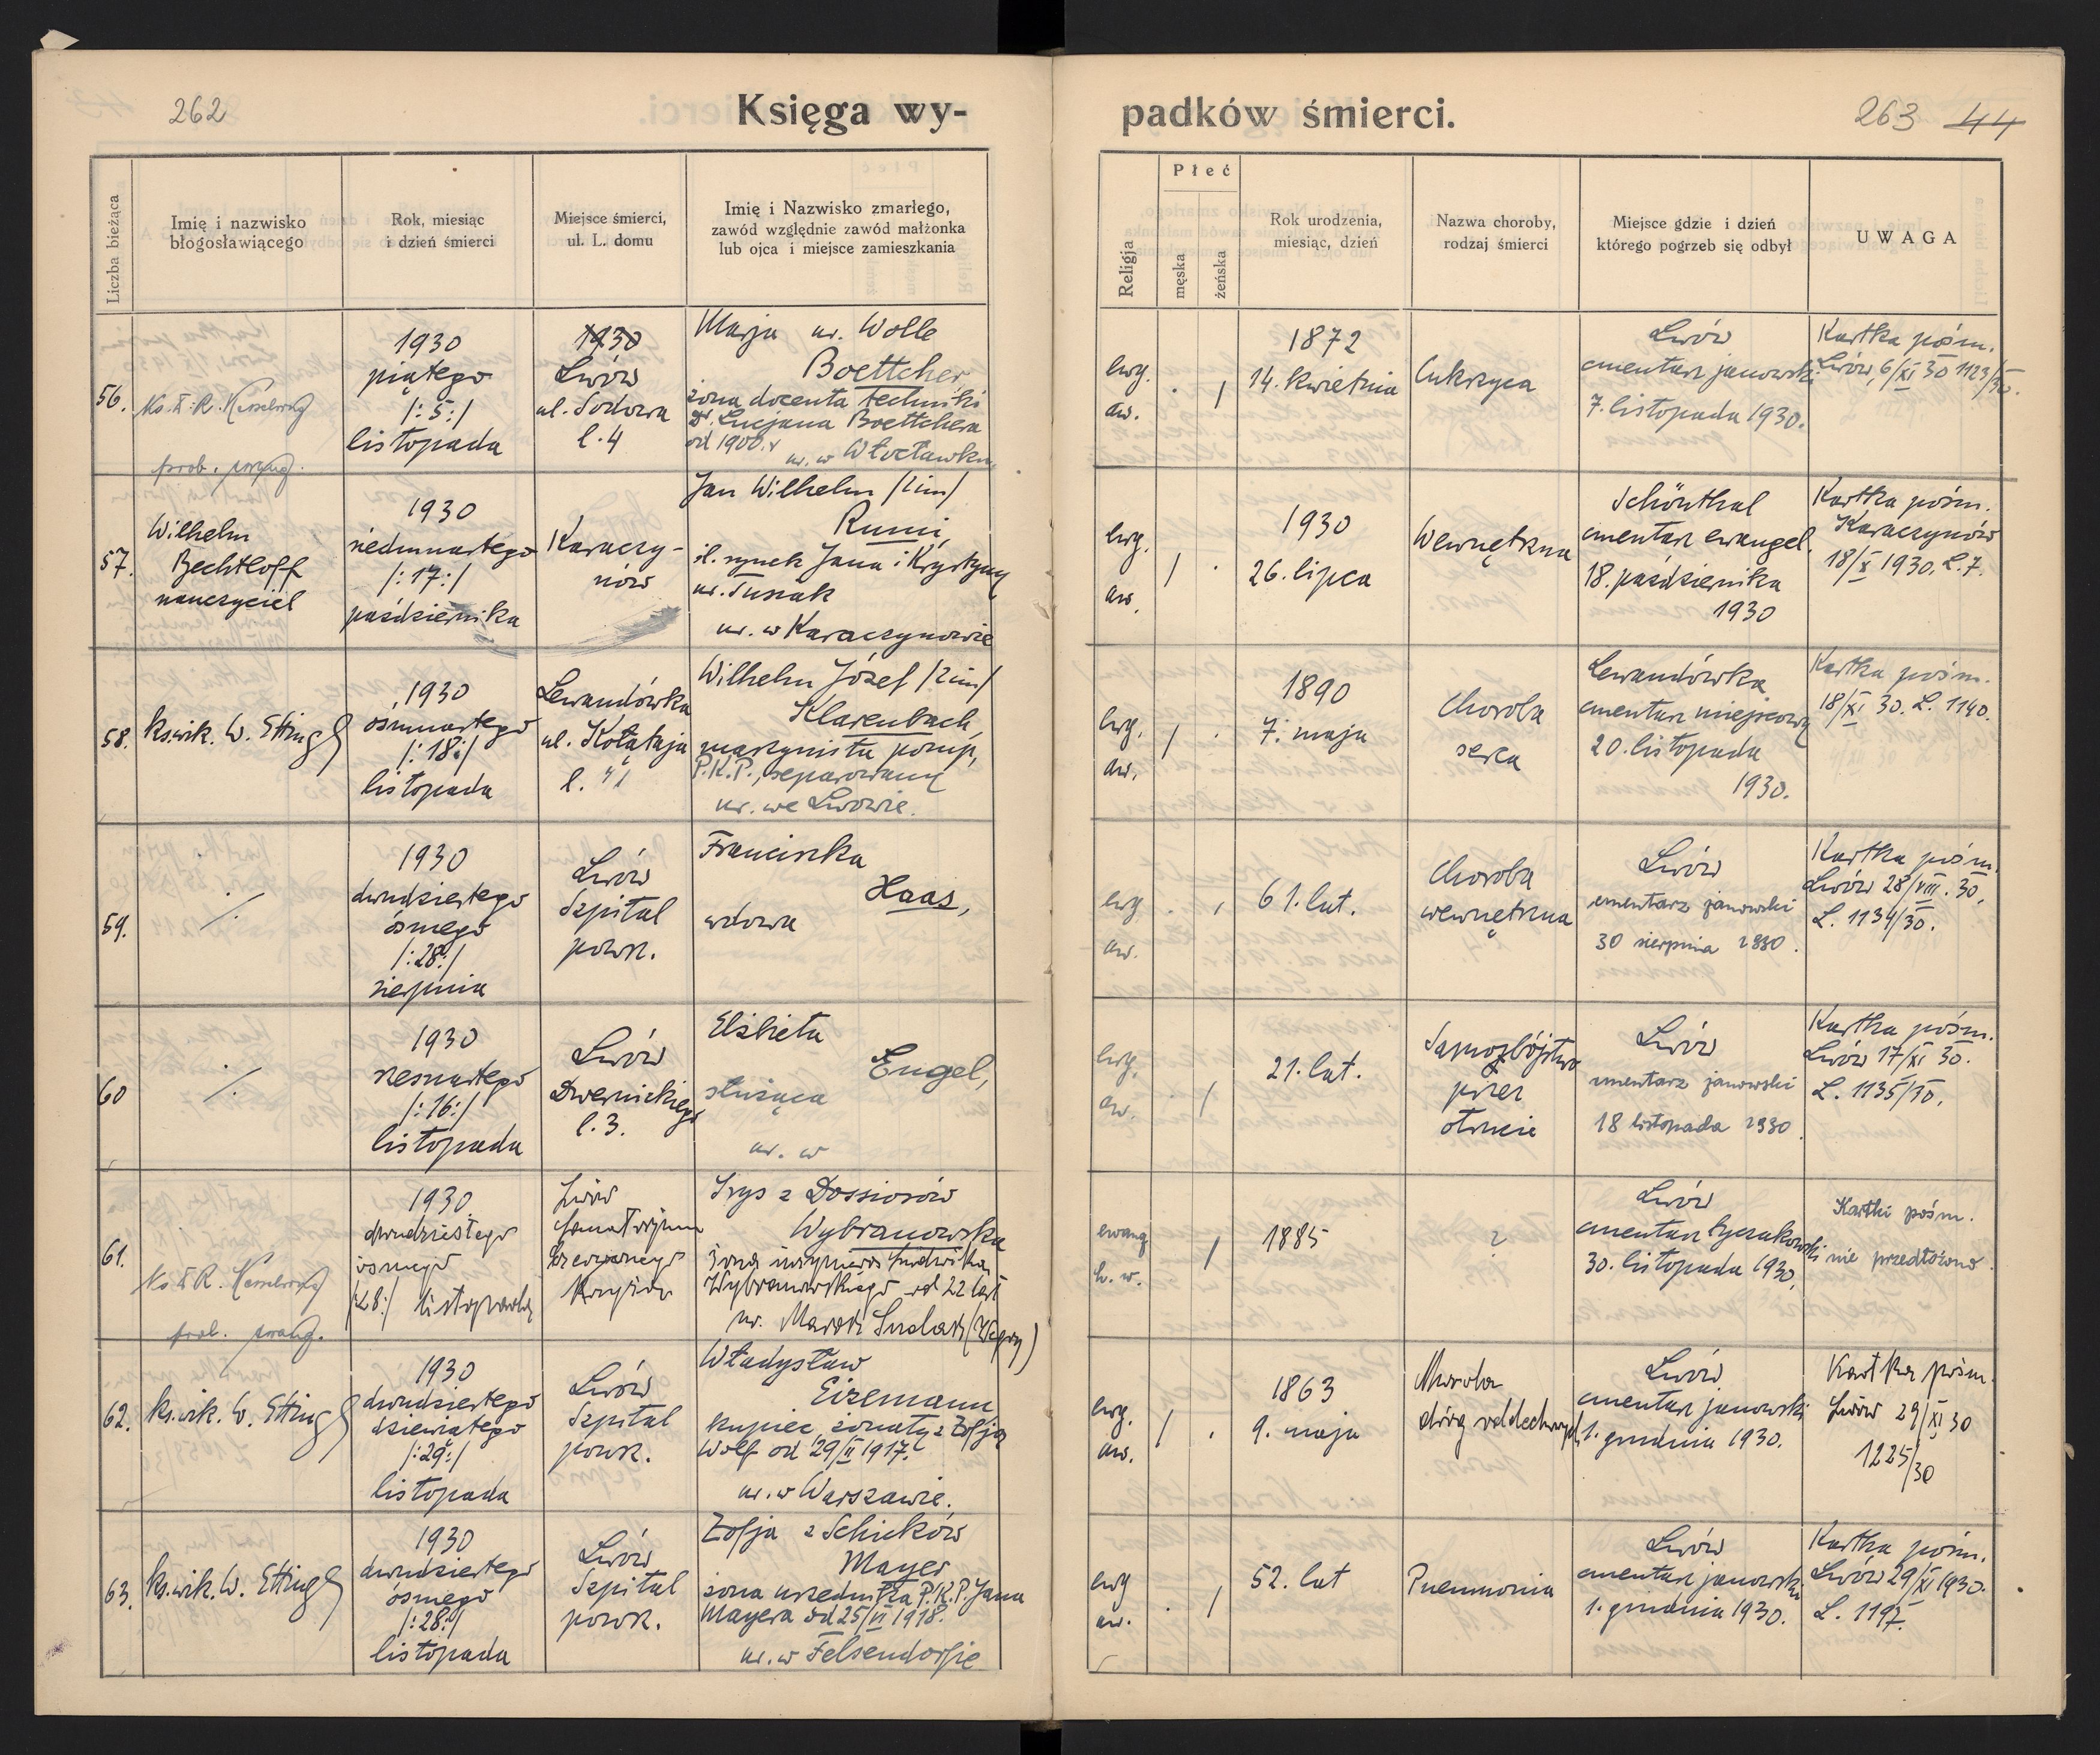 262
Księga wy-
Liczba bieżąca
Imię i nazwisko
błogosławiącego
Rok, miesiąc
i dzień śmierci
Miejsce śmierci,
ul. L. domu
Imię i Nazwisko zmarłego,
zawód względnie zawód małżonka
lub ojca i miejsce zamieszkania
56.
prob.
1930
piątego
/:5:/
listopada
1930
Lwów
ul. Sodowa
l. 4
Marja ur. Wolle
Boettcher,
żona docenta techniki
Dr. Lucjana Boettchera
od 1900 r
ur. w Włocławku
57.
Wilhelm
Bechtloff
nauczyciel
1930
siedmnastego
/:17:/
października
Karaczy-
nów
Jan Wilhelm /2im/
Rumi,
śl. synek Jana i Krystyny
ur. Tussak
ur. w Karaczynowie
58.
ks. wik. W. Ettinger
1930
ośmnastego
/:18:/
listopada
Lewandówka
ul. Kołątaja
l. 41
Wilhelm Józef /2im/
Klarenbach,
maszynista pomp,
P.K.P., separowany
ur. we Lwowie.
59.
./.
1930
dwudziestego
ósmego
/:28:/
sierpnia
Lwów
Szpital
powsz.
Franciszka
Haas,
wdowa
60
./.
1930
szesnastego
/:16:/
listopada
Lwów
Dwernickiego
l. 3.
Elżbieta
Engel,
służąca
ur. w
61.
prob. ewang.
1930
dwudziestego
ósmego
/28:/ listopada
Lwów
Sanatorjum
Czerwonego
Krzyża
Irys z Dossiosów
Wybranowska
żona inżyniera Ludwika
Wybranowskiego od 22 lat
ur. (Węgry)
62.
ks. wik. W. Ettinger
1930
dwudziestego
dziewiątego
/:29:/
listopada
Lwów
Szpital
powsz.
Władysław
Eizemann
kupiec, żonaty z Zofją
Wolf od 29/II 1917.
ur. w Warszawie.
63.
ks. wik. W. Ettinger
1930
dwudziestego
ósmego
/:28:/
listopada
Lwów
Szpital
powsz.
Zofja z Schicków
Mayer
żona urzednika P.K.P. Jana
Mayera od 25/VI 1918.
ur. w Felsendorfie
padków śmierci.
263 44
Religja
Płeć
męska
żeńska
Rok urodzenia,
miesiąc, dzień
Nazwa choroby,
rodzaj śmierci
Miejsce gdzie i dzień
którego pogrzeb się odbył
UWAGA
ewg.
aw.
. /
1872
14. kwietnia
Cukrzyca
Lwów
cmentarz janowski
7. listopada 1930.
Kartka pośm.
Lwów, 6/XI 30 1123/30.
ewg.
aw.
/ .
1930
26. lipca
Wewnętrzna
Schönthal
cmentarz ewangel.
18. października
1930
Kartka pośm.
Karaczynów
18/X 1930. L. 7.
ewg.
aw.
/ .
1890
7. maja
Choroba
serca
Lewandówka
cmentarz miejscowy
20. listopada
1930.
Kartka pośm.
18/XI 30. L. 1140.
ewg
aw.
. /
61. lat.
Choroba
wewnętrzna
Lwów
cmentarz janowski
30 sierpnia 1930.
Kartka pośm.
Lwów 28/VIII. 30.
L. 1134/30.
ewg.
aw.
. /
21. lat.
Samozbójstwo
przez
otrucie
Lwów
cmentarz janowski
18 listopada 1930.
Kartka pośm.
Lwów 17/XI 30.
L. 1135/30.
ewang
h. w.
/
1885
?
Lwów
cmentarz Łyczakowski
30. listopada 1930.
Kartki pośm.
nie przedłożono.
ewg.
aw.
/ .
1863
9. maja
Choroba
dróg oddechowych
Lwów
cmentarz janowski
1. grudnia 1930.
Kartka pośm.
Lwów 29/XI 30
1225/30
ewg
aw.
. /
52. lat
Pneumonia
Lwów
cmentarz janowski
1. grudnia 1930.
Kartka pośm.
Lwów 29/XI 1930.
L. 1197.